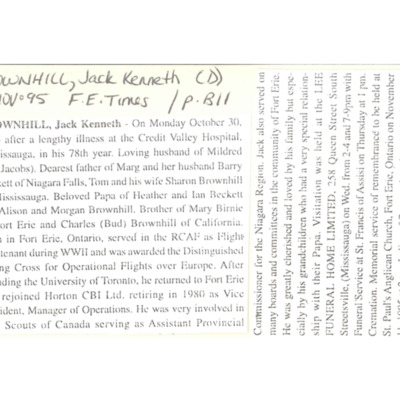 OWNHILL, Jack Kenneth (D)
NOV°95 F.E. Times / p. B11
OWNHILL, Jack Kenneth - On Monday October 30,
after a lengthy illness at the Credit Valley Hospital,
issauga, in his 78th year. Loving husband of Mildred
Jacobs). Dearest father of Marg and her husband Barry
ett of Niagara Falls, Tom and his wife Sharon Brownhill
ississauga. Beloved Papa of Heather and Ian Beckett
Alison and Morgan Brownhill. Brother of Mary Birnie
ort Erie and Charles (Bud) Brownhill of California.
n in Fort Erie, Ontario, served in the RCAF as Flight
tenant during WWII and was awarded the Distinguished
ng Cross for Operational Flights over Europe. After
nding the University of Toronto, he returned to Fort Erie
rejoined Horton CBI Ltd. retiring in 1980 as Vice
ident, Manager of Operations. He was very involved in
Scouts of Canada serving as Assistant Provincial
Commissioner for the Niagara Region. Jack also served on
many boards and committees in the community of Fort Erie.
He was greatly cherished and loved by his family but espe-
cially by his grandchildren who had a very special relation-
ship with their Papa. Visitation was held at the LEE
FUNERAL HOME LIMITED, 258 Queen Street South
Streetsville, (Mississauga) on Wed. from 2-4 and 7-9pm with
Funeral Service at St. Francis of Assisi on Thursday at 1 pm.
Cremation. Memorial service of remembrance to be held at
St. Paul's Anglican Church, Fort Erie, Ontario on November